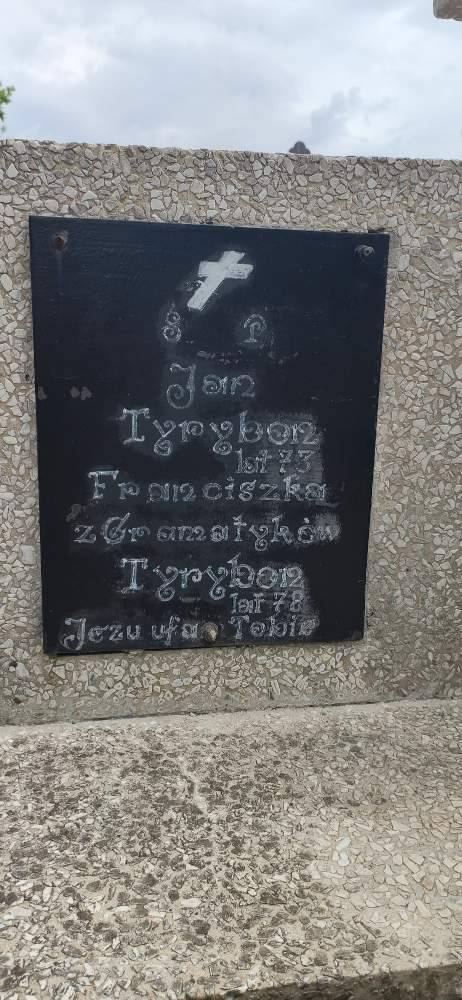 Ś P
Jan
Tyrybon
lat 73
Franciszka
z Gramatyków
Tyrybon
lat 78
Jezu ufam Tobie